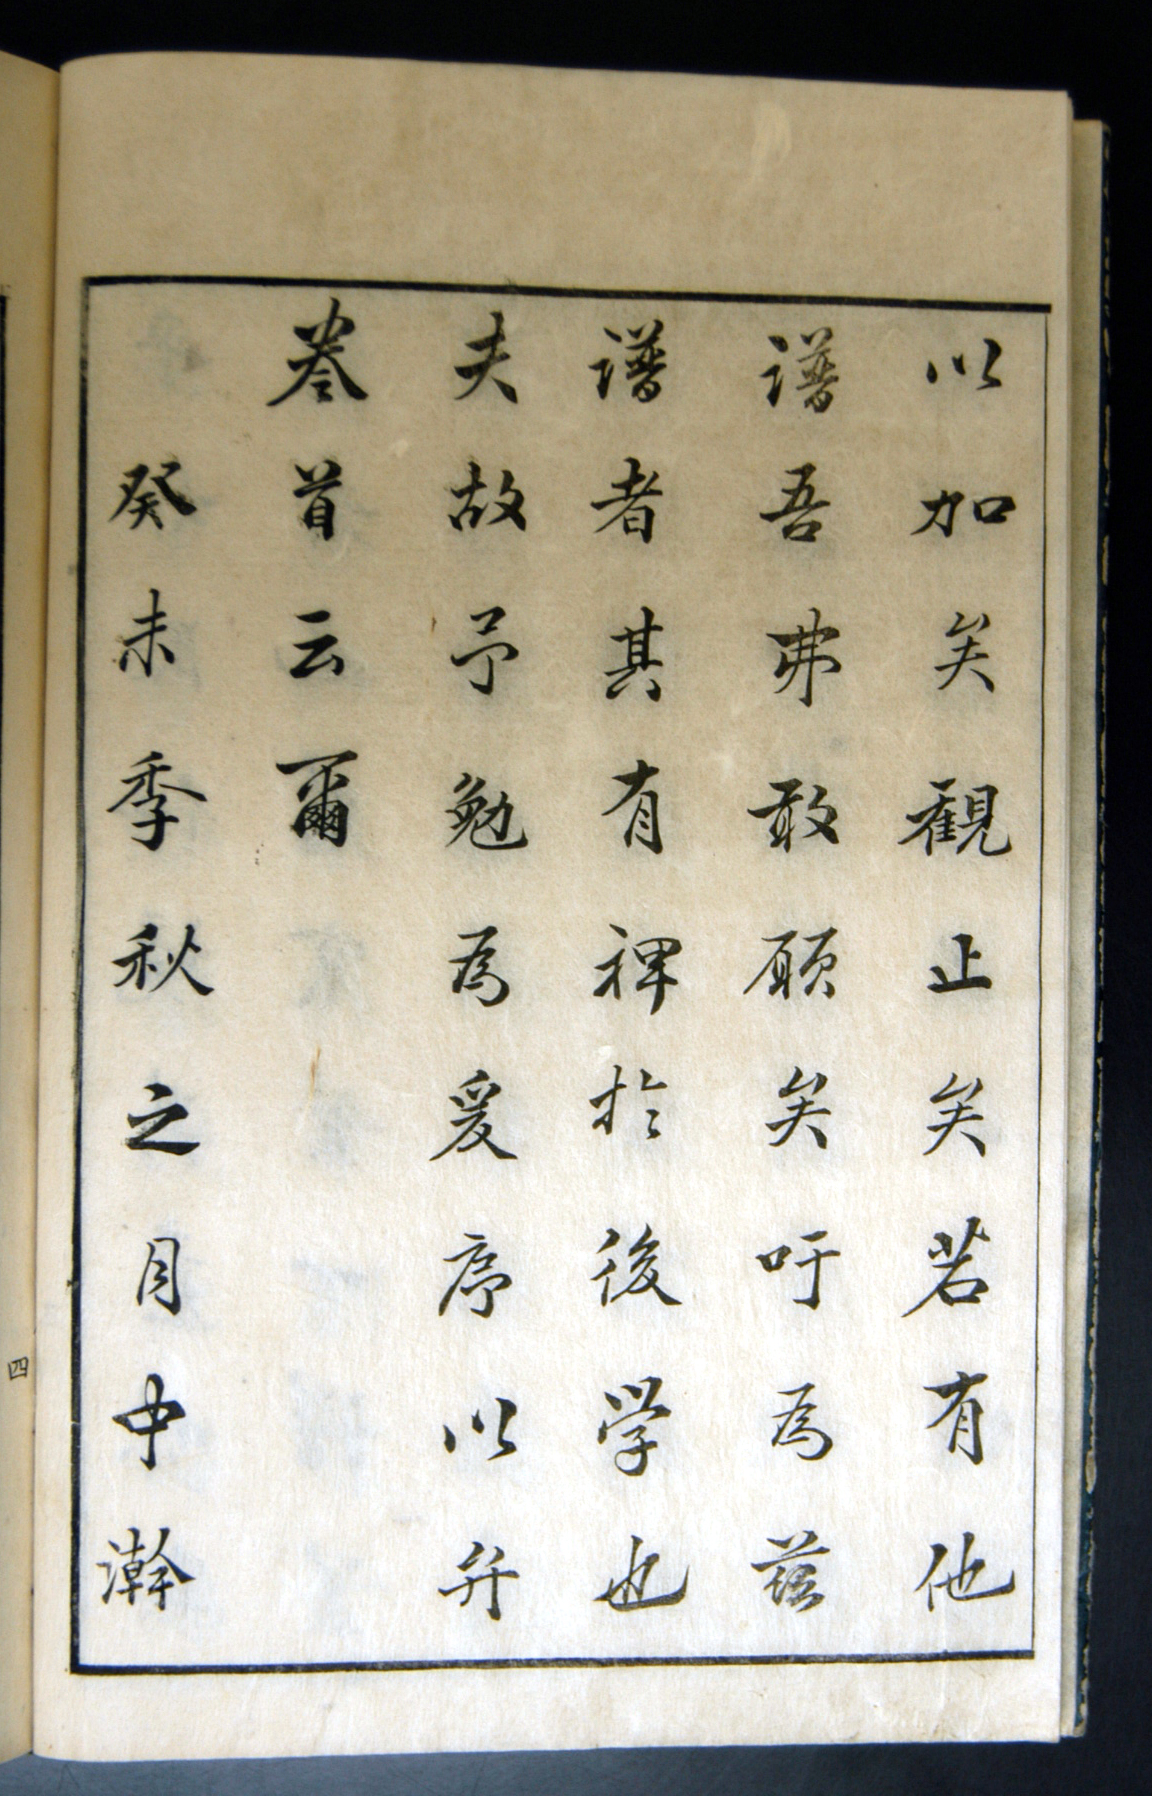 以加矣觀止矣若有他
譜吾弗敢願矣吁為茲
譜者其有裨於後学也
夫故予勉為爰序以弁
巻首云爾
癸未季秋之月中澣
四